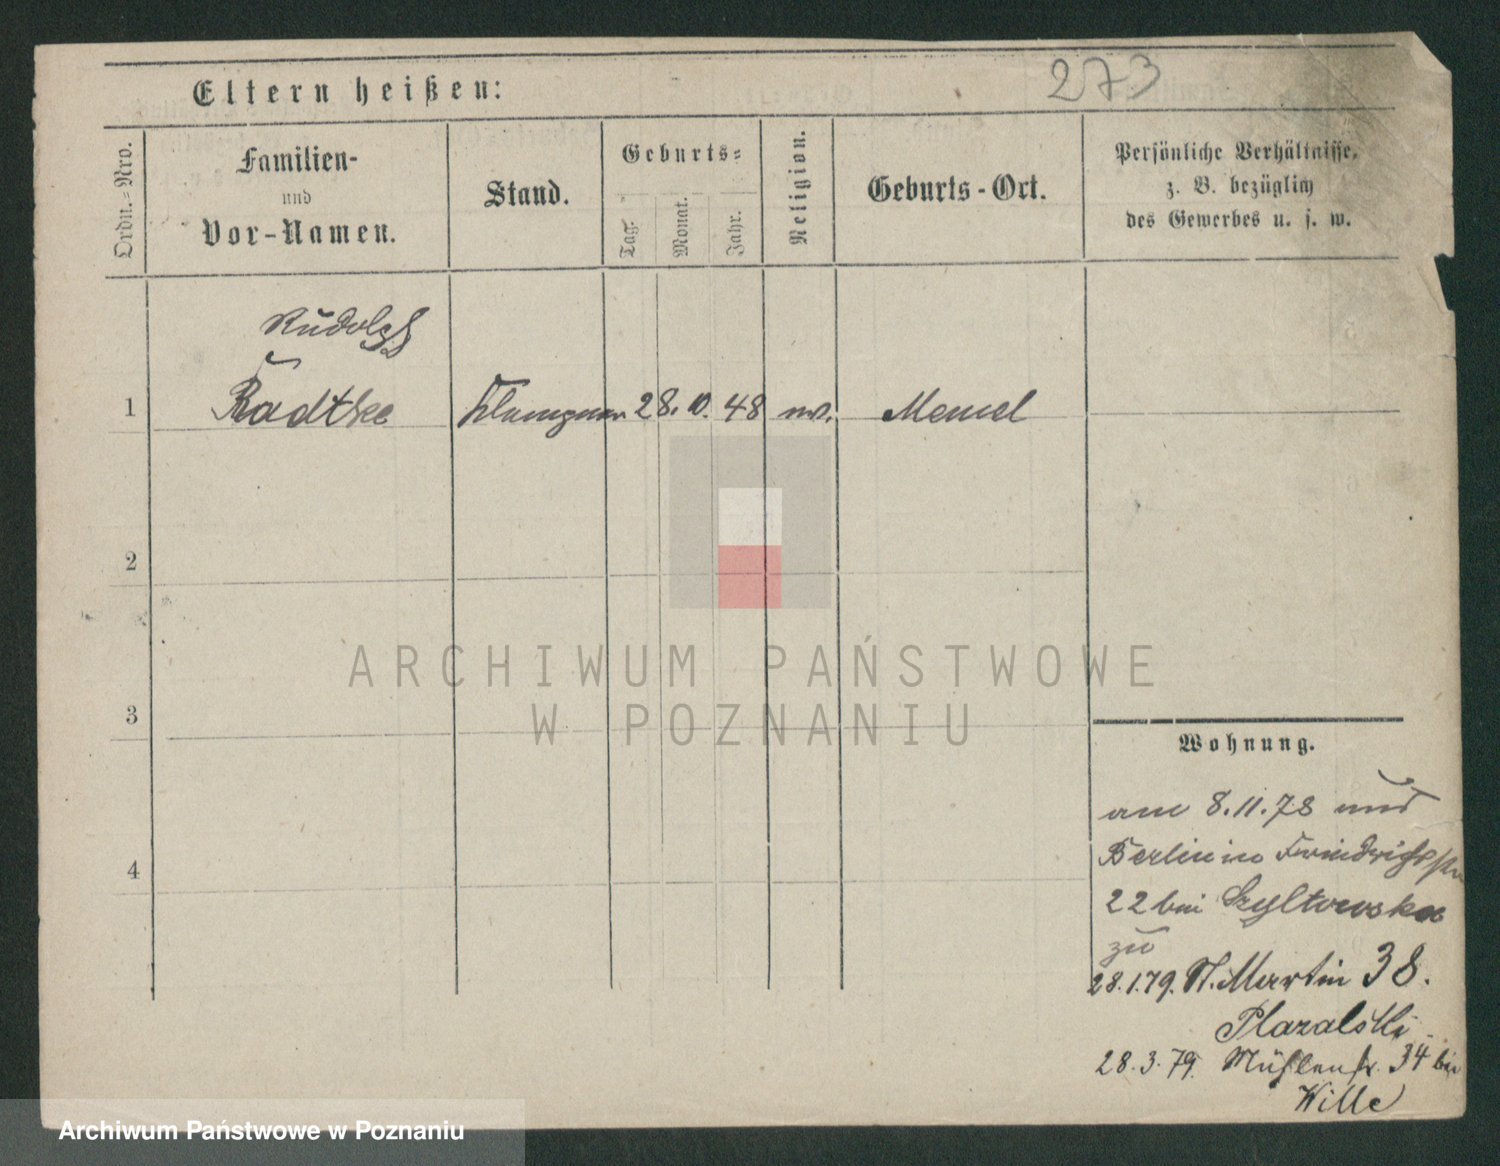 273
Eltern heißen:
Ordn.=Nro.
Familien-
und
Vor-Namen.
Stand.
Geburts=
Tag.
Monat.
Jahr.
Religion.
Geburts-Ort.
Persönliche Verhältnisse,
z. B. bezüglich
des Gewerbes u. s. w.
Rudolph
1 Radtke 28. 10. 48 Memel
2
3
4
ARCHIWUM PAŃSTWOWE
W POZNANIU
Wohnung.
am 8.11.78 und
Berlin in Friedrichstr
22 bei
zu
28.1.79. St. Martin 38.
28.3.79. Mühlenstr. 34 bei
Wille
Archiwum Państwowe w Poznaniu